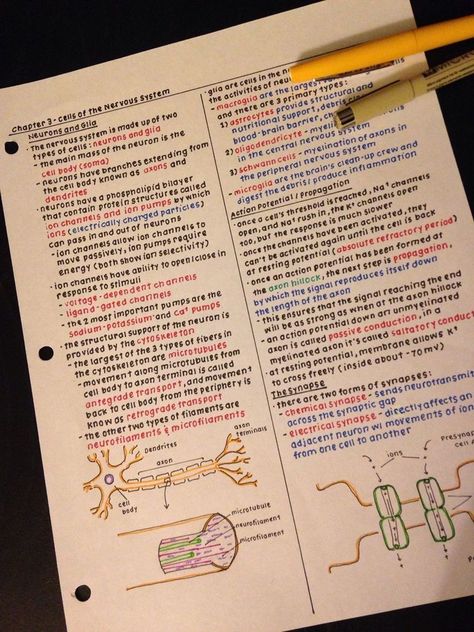 Chapter 3 - Cells of the Nervous System
Neurons and Glia
- the nervous system is made up of two
types of cells: neurons and glia
- the main mass of the neuron is the
cell body (soma)
- neurons have branches extending from
the cell body known as axons and
dendrites
- neurons have a phospholipid bilayer
that contain protein structures called
ion channels and ion pumps by which
ions (electrically charged particles)
can pass in and out of neurons
- ion channels allow ion channels to
move passively, ion pumps require
energy (both show ion selectivity)
- ion channels have ability to open/close in
response to stimuli
- voltage-dependent channels
- ligand-gated channels
- the 2 most important pumps are the
sodium-potassium and Ca+ pumps
- the structural support of the neuron is
provided by the cytoskeleton
- the largest of the 3 types of fibers in
the cytoskeleton are microtubules
- movement along microtubules from
cell body to axon terminal is called
antegrade transport, and movement
back to cell body from the periphery is
know as retrograde transport
- the other two types of filaments are
neurofilaments & microfilaments
dendrites
axon
axon
terminals
cell
body
microtubule
neurofilament
microfilament
- glia are cells in the
the activities of
- macroglia are the largest
and there are 3 primary types:
1) astrocytes provide structural and
nutritional support, debris
blood-brain barrier,
2) oligodendricyte -
in the central nervous system
3) schwann cells - myelination of axons in
the peripheral nervous system
- microglia are the brain's clean-up crew and
digest the debris, produce inflammation
Action Potential / Propagation
- once a cell's threshold is reached, Na+ channels
open, and Na+ rush in, the K+ channels open
too, but the response is much slower
- once the channels have been activated, they
can't be activated again until the cell is back
at resting potential (absolute refractory period)
- once an action potential has been formed at
the axon hillock, the next step is propagation,
by which the signal reproduces itself down
the length of the axon
- this ensures that the signal reaching the end
will be as strong as when at the axon hillock
- an action potential down an unmyelinated
axon is called passive conduction, in a
myelinated axon it's called saltatory
- at resting potential, membrane allows K+
to cross freely (inside about -70mV)
The Synapse
- there are two forms of synapses:
- chemical synapse - sends
across the synaptic gap
- electrical synapse - directly affects an
adjacent neuron w/ movements of
from one cell to another
ions